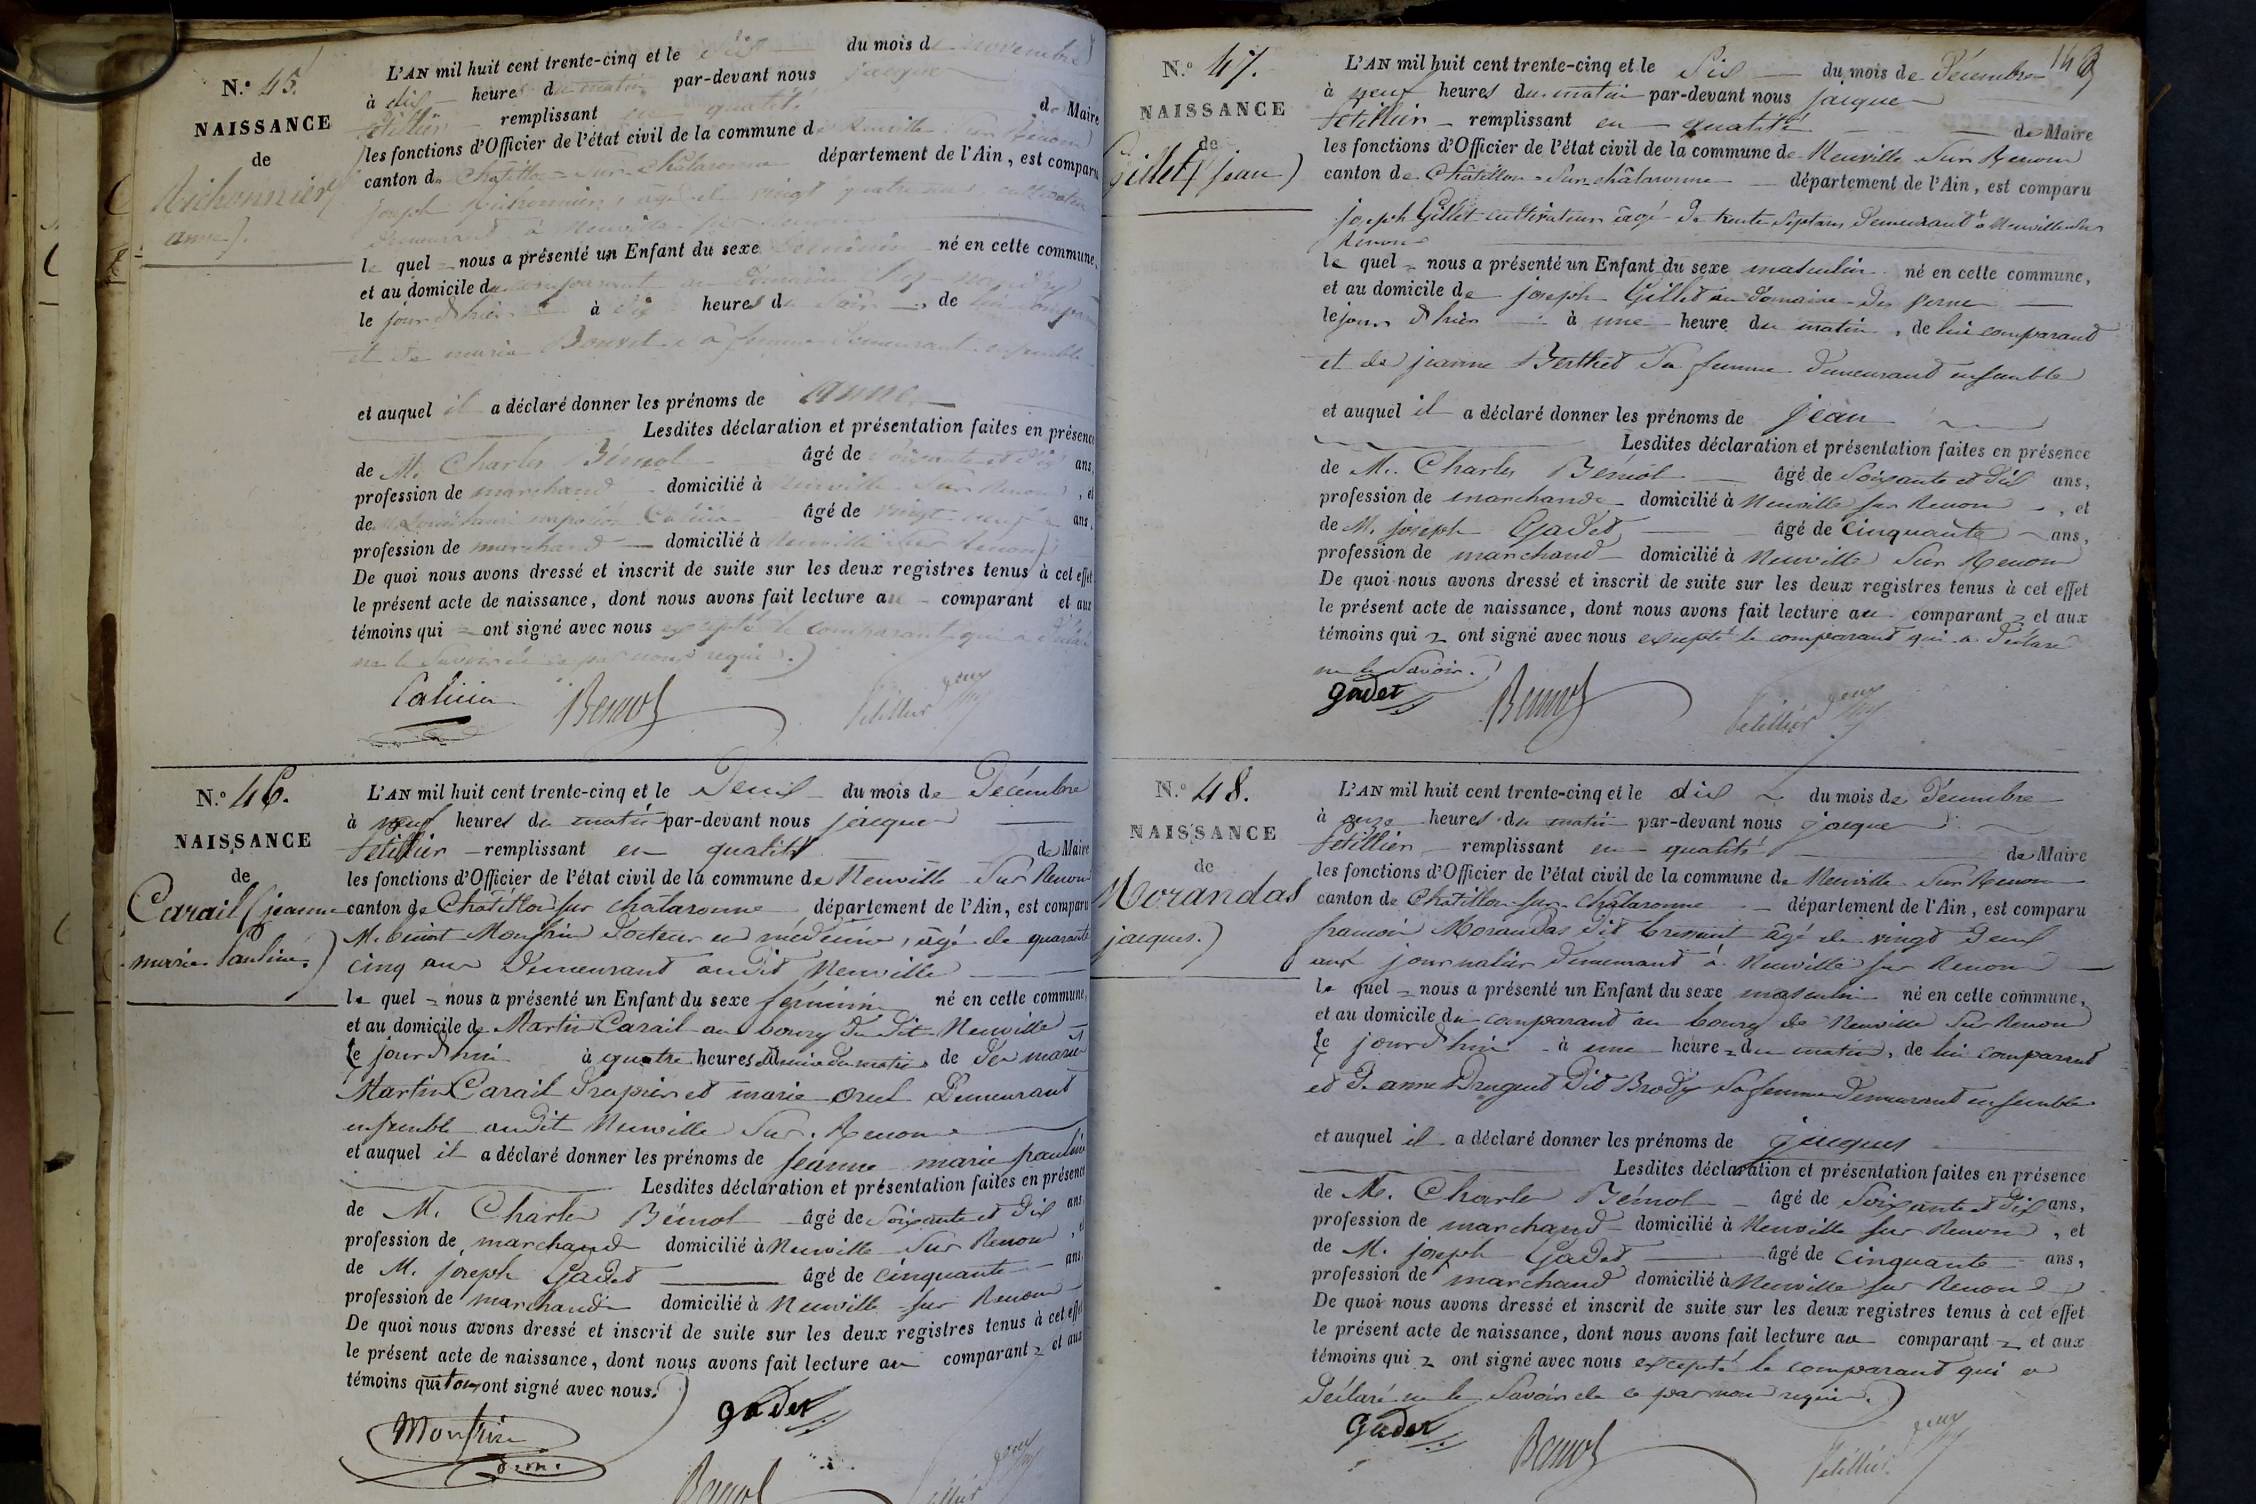 N.º 45.
NAISSANCE
de
Richonnier
anne).
L'AN mil huit cent trente-cinq et le dix du mois de novembre
à dix heures du matin par-devant nous jacques
fétillier remplissant en qualité de Maire
les fonctions d'Officier de l'état civil de la commune de Neuville Sur Renom
canton de Châtillon-Sur-Châlaronne département de l'Ain, est comparu
joseph Richonnier, âgé de vingt quatre ans, cultivateur
demeurant à Neuville
le quel nous a présenté un Enfant du sexe féminin né en cette commune,
et au domicile du comparant au domaine
le jour d'hier à dix heures du soir, de lui comparant
et de marie Bouvet sa femme demeurant ensemble
et auquel il a déclaré donner les prénoms de anne
Lesdites déclaration et présentation faites en présence
de M. Charles Bémol âgé de Soixante et dix ans,
profession de marchand domicilié à Neuville Sur Renom, et
de M. âgé de vingt neuf ans,
profession de marchand domicilié à Neuville Sur Renom
De quoi nous avons dressé et inscrit de suite sur les deux registres tenus à cet effet
le présent acte de naissance, dont nous avons fait lecture au comparant et aux
témoins qui ont signé avec nous excepté le comparant qui a déclaré
ne le Savoir de ce par nous requis.)
Bemol
fétillier
N.º 46.
NAISSANCE
de
Carail (jeanne
marie Pauline)
L'AN mil huit cent trente-cinq et le Deux du mois de Décembre
à neuf heures du matin par-devant nous jacques
fétillier remplissant en qualité de Maire
les fonctions d'Officier de l'état civil de la commune de Neuville Sur Renom
canton de Châtillon sur châlaronne département de l'Ain, est comparu
M. benoit Monfrin Docteur en médecine, âgé de quarante
cinq ans Demeurant audit Neuville
le quel nous a présenté un Enfant du sexe féminin né en cette commune,
et au domicile de Martin Carail au bourg du dit Neuville
le jour d'hui à quatre heures du matin de des mariés
Martin Carail Drapier et marie Demeurant
ensemble audit Neuville Sur Renom
et auquel il a déclaré donner les prénoms de jeanne marie pauline
Lesdites déclaration et présentation faites en présence
de M. Charles Bémol âgé de Soixante et Dix ans,
profession de marchand domicilié à Neuville Sur Renom, et
de M. joseph Gadet âgé de cinquante ans,
profession de marchand domicilié à Neuville sur Renom
De quoi nous avons dressé et inscrit de suite sur les deux registres tenus à cet effet
le présent acte de naissance, dont nous avons fait lecture au comparant et aux
témoins qui tous ont signé avec nous.)
Monfrin
d. m.
gadet
Bemol
N.º 47.
NAISSANCE
de
Gillet (jean)
L'AN mil huit cent trente-cinq et le Six du mois de Décembre
à neuf heures du matin par-devant nous jacques
fétillier remplissant en qualité de Maire
les fonctions d'Officier de l'état civil de la commune de Neuville Sur Renom
canton de Châtillon-Sur-châlaronne département de l'Ain, est comparu
joseph Gillet cultivateur âgé de trente Sept ans Demeurant à Neuville sur
Renom
le quel nous a présenté un Enfant du sexe masculin né en cette commune,
et au domicile de joseph Gillet au domaine des verne
le jour d'hier à une heure du matin, de lui comparant
et de jeanne Berthet Sa femme Demeurant ensemble
et auquel il a déclaré donner les prénoms de jean
Lesdites déclaration et présentation faites en présence
de M. Charles Bemol âgé de Soixante et Dix ans,
profession de marchand domicilié à Neuville sur Renom, et
de M. joseph Gadet âgé de cinquante ans,
profession de marchand domicilié à Neuville Sur Renom
De quoi nous avons dressé et inscrit de suite sur les deux registres tenus à cet effet
le présent acte de naissance, dont nous avons fait lecture au comparant et aux
témoins qui ont signé avec nous excepté le comparant qui a Déclaré
ne le Savoir.)
gadet
Bemol
fétillier
N.º 48.
NAISSANCE
de
Morandas
jacques.)
L'AN mil huit cent trente-cinq et le dix du mois de Décembre
à onze heures du matin par-devant nous jacques
fétillier remplissant en qualité de Maire
les fonctions d'Officier de l'état civil de la commune de Neuville Sur Renom
canton de Châtillon-sur-Châlaronne département de l'Ain, est comparu
françois Morandas Dit âgé de vingt Deux
ans journalier Demeurant à Neuville sur Renom
le quel nous a présenté un Enfant du sexe masculin né en cette commune,
et au domicile du comparant au bourg de Neuville Sur Renom
le jour d'hui à une heure du matin, de lui comparant
et D'anne Druguet Dit Brody Sa femme Demeurant ensemble
et auquel il a déclaré donner les prénoms de jacques
Lesdites déclaration et présentation faites en présence
de M. Charles Bémol âgé de Soixante et Dix ans,
profession de marchand domicilié à Neuville sur Renom, et
de M. joseph Gadet âgé de cinquante ans,
profession de marchand domicilié à Neuville sur Renom
De quoi nous avons dressé et inscrit de suite sur les deux registres tenus à cet effet
le présent acte de naissance, dont nous avons fait lecture au comparant et aux
témoins qui ont signé avec nous excepté le comparant qui a
Déclaré ne le Savoir de ce par nous requis.)
Gadet
Bemol
fétillier